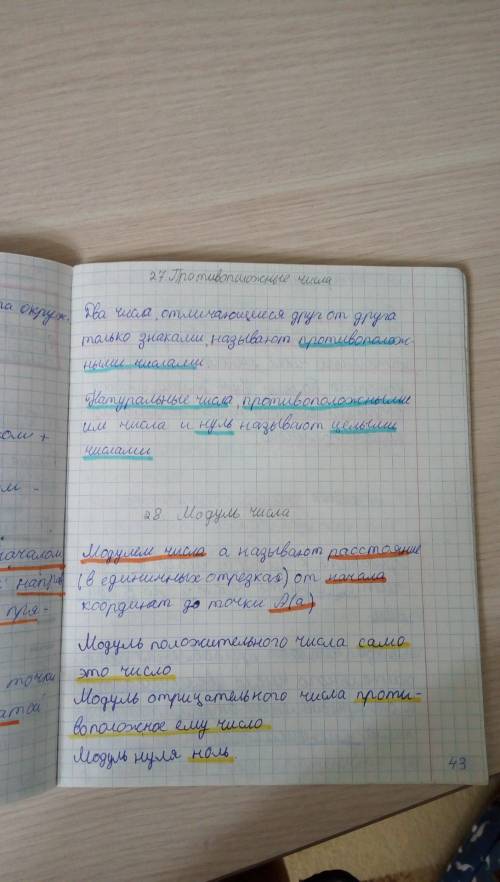 27. Противоположные числа
Два числа, отличающиеся друг от друга
только знаками, называют противополож-
ными числами
Натуральные числа, противоположные
им числа и нуль называют целыми
числами
28. Модуль числа
Модулем числа а называют расстояние
(в единичных отрезках) от начала
координат до точки А(а)
Модуль положительного числа само
это число
Модуль отрицательного числа проти-
воположное ему число
Модуль нуля ноль.
43
та окруж.
ом +
м -
началом
направ
пря-
точки
атой